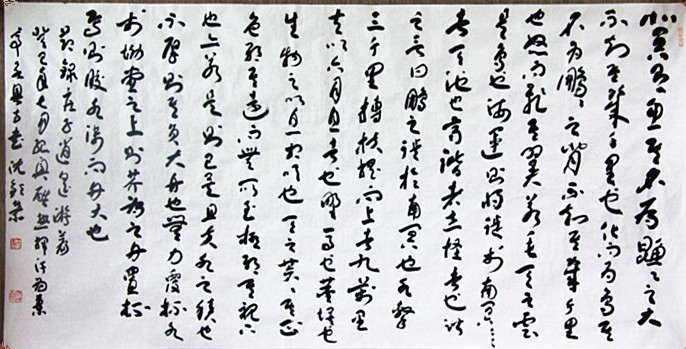 北冥有魚其名為鯤鯤之大
不知其幾千里也化而為鳥其
名為鵬鵬之背不知其幾千里
也怒而飛其翼若垂天之雲
是鳥也海運則將徙於南冥南冥
者天池也齊諧者志怪者也諧
之言曰鵬之徙於南冥也水擊
三千里摶扶搖而上者九萬里
去以六月息者也野馬也塵埃也
生物之以息相吹也天之蒼蒼其正
色邪其遠而無所至極邪其視下
也亦若是則已矣且夫水之積也
不厚則其負大舟也無力覆杯水
於坳堂之上則芥為之舟置杯
焉則膠水淺而舟大也
錄莊子逍遙游
癸巳年七月